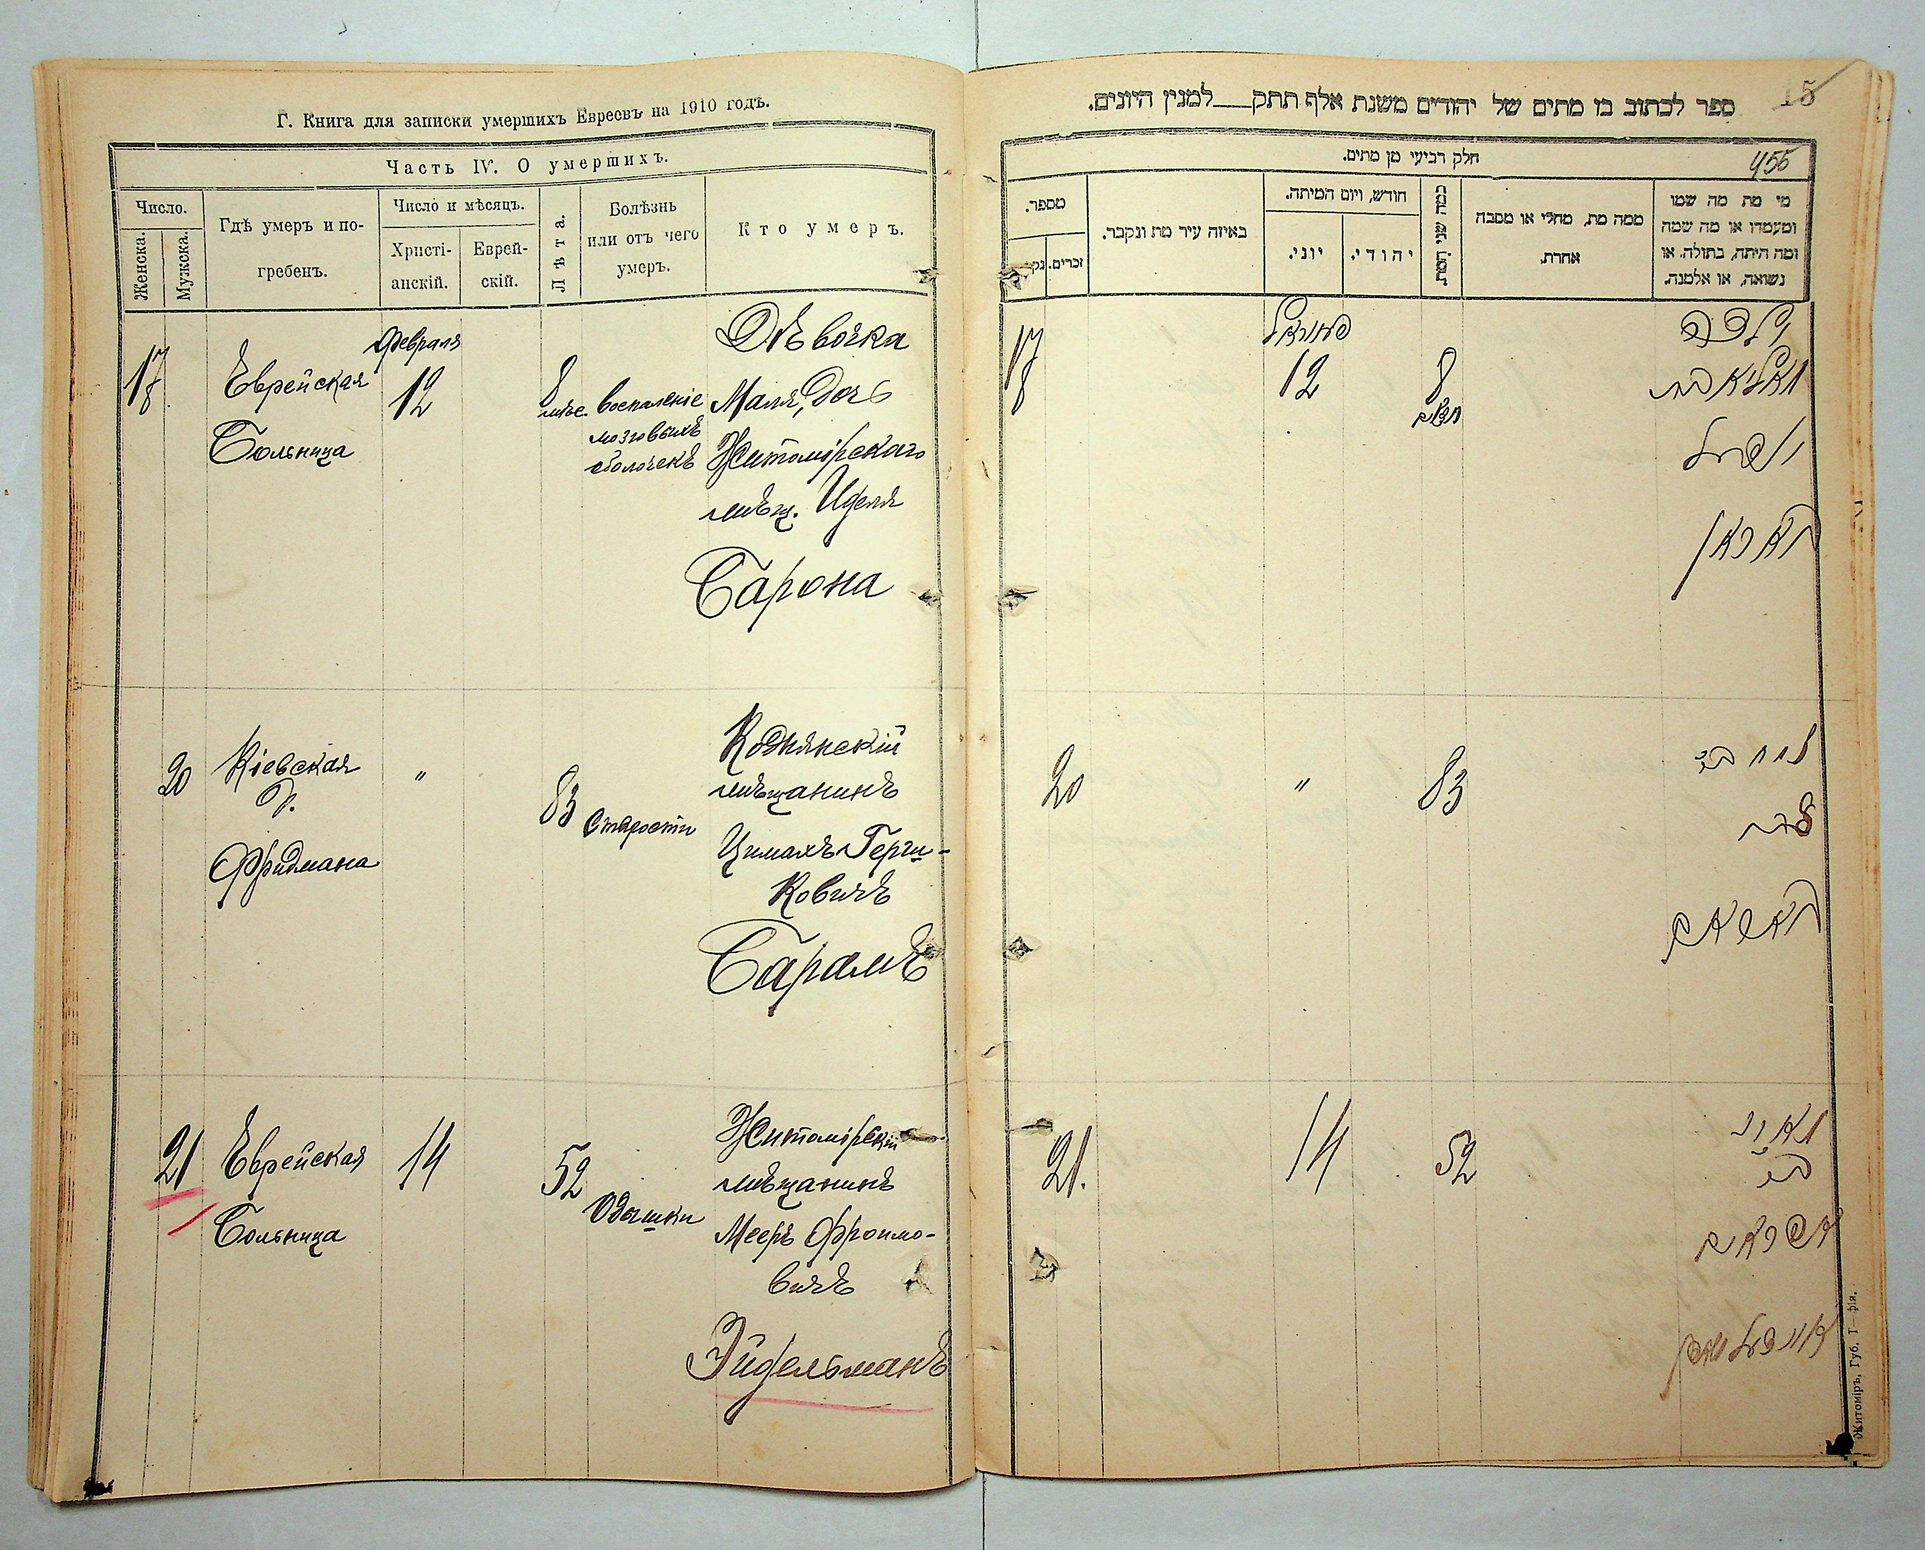 Г. Книга для записки умершихъ Евреевъ на 1910 годъ.
Часть IV. О умершихъ.
Число.
Женска.
Мужска.
Гдѣ умеръ и по-
гребенъ.
Число и мѣсяцъ.
Христі-
анскій.
Еврей-
скій.
Лѣта.
Болѣзнь
или отъ чего
умеръ.
Кто умеръ.
17
Еврейская
Больница
Февраля
12
8
мѣс.
воспаленіе
мозговыхъ
оболочекъ
Дѣвочка
Маля, дочь
Житомірскаго
мѣщ. Иделя
Барона
20
Кіевская
д.
Фридмана
"
83
Старости
Коднянскій
мѣщанинъ
Цимахъ Герш-
ковичъ
Барамъ
21
Еврейская
Больница
14
52
Одышки
Житомірскій
мѣщанинъ
Мееръ Фроимо-
вичъ
Эйдельманъ
15
ספר לכתוב בו מתים של יהודים משנת אלף תתק למנין היונים.
חלק רביעי מן מתים.
455
מספר.
זכרים.
נק
באיזה עיר מת ונקבר.
חודש, ויום המיתה.
יוני.
יהודי.
כמה שני המת.
ממה מת, מחלי או מסבה
אחרת.
מי מת מה שמו
ומעמדו או מה שמה
ומה היתה, בתולה, או
נשואה, או אלמנה.
17
פעווראל
12
8
חדשים
ילדה
יודל
באראן
20
"
83
צמח ב״ר
באראם
21.
14
52
מאיר
ב״ר
אפראים
איידעלמאן
Житоміръ, Губ. Т—фія.